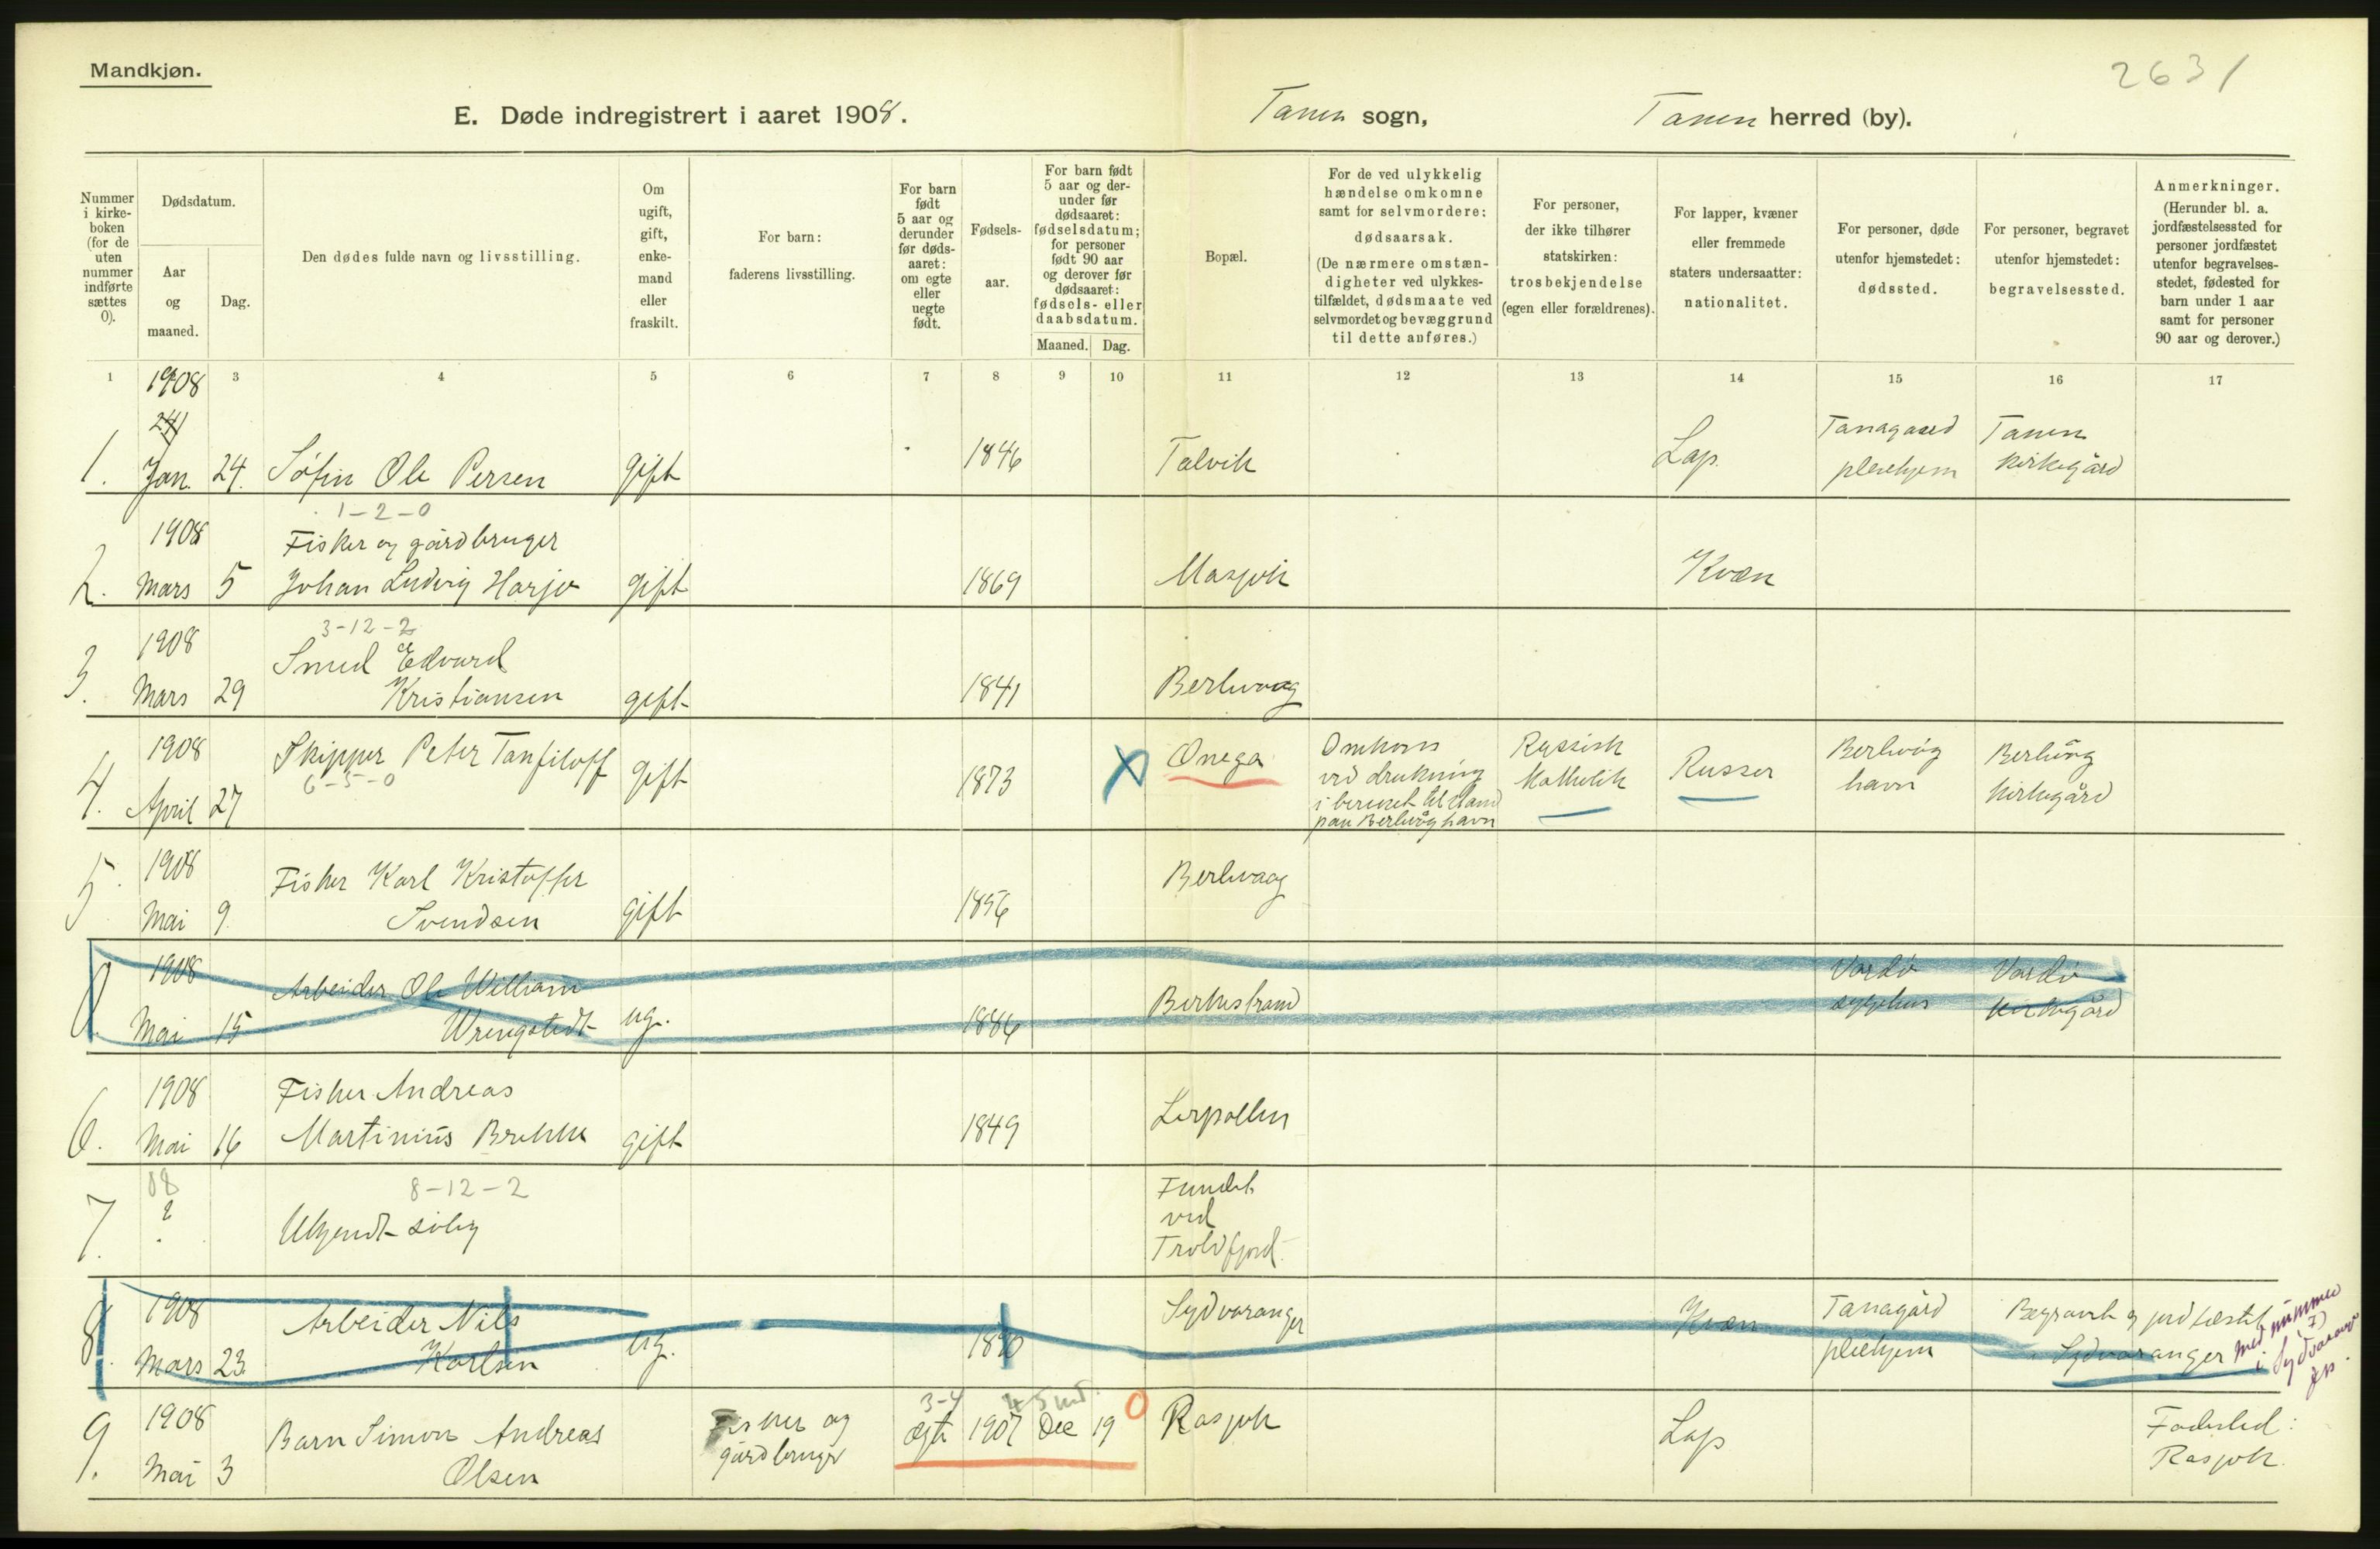 Mandkjøn.
2631
E. Døde indregistrert i aaret 1908. Tanen sogn, Tanen herred (by).
Nummer i kirke-boken (for de uten nummer indførte sættes 0).
Dødsdatum.
Aar og maaned.
Dag.
Den dødes fulde navn og livsstilling.
Om ugift, gift, enke-mand eller fraskilt.
For barn: faderens livsstilling.
For barn født 5 aar og derunder før døds-aaret: om egte eller uegte født.
Fødsels-aar.
For barn født 5 aar og der-under før dødsaaret: fødselsdatum; for personer født 90 aar og derover før dødsaaret: fødsels- eller daabsdatum.
Maaned. Dag.
Bopæl.
For de ved ulykkelig hændelse omkomne samt for selvmordere: dødsaarsak. (De nærmere omstæn-digheter ved ulykkes-tilfældet, dødsmaate ved selvmordet og bevæggrund til dette anføres.)
For personer, der ikke tilhører statskirken: trosbekjendelse (egen eller forældrenes).
For lapper, kvæner eller fremmede staters undersaatter: nationalitet.
For personer, døde utenfor hjemstedet: dødssted.
For personer, begravet utenfor hjemstedet: begravelsessted.
Anmerkninger. (Herunder bl. a. jordfæstelsessted for personer jordfæstet utenfor begravelses-stedet, fødested for barn under 1 aar samt for personer 90 aar og derover.)
1 3 4 5 6 7 8 9 10 11 12 13 14 15 16 17
1908
24/1
1. Jan. 24. Söfin Ole Persen gift 1846 Talvik Lap. Tanagaard pleiehjem Tanen kirkegård
1-2-0
1908 Fisker og gårdbruger
2. Mars 5 Johan Ludvig Harjo gift 1869 Masjok Kvæn
3-12-2
1908 Smed Edvard
3. Mars 29 Kristiansen gift 1841 Berlevaag
1908 Skipper Peter Tanfiloff
6-5-0
4. April 27 gift 1873 X Onega Omkom
ved drukning
i beruset tilstand
paa Berlevåg havn
Russisk
Katholik
Russer
Berlevåg
havn
Berlevåg
kirkegård
1908 Fisker Karl Kristoffer
5. Mai 9. Svendsen gift 1856 Berlevaag
1908 Arbeider Ole William
0. Mai 15 Wrengstedt ug. 1886 Birkestrand Vardö sygehus Vardö kirkegård
1908 Fisker Andreas
6. Mai 16 Martinius Brekke gift 1849 Leirpollen
08 8-12-2
7. ? Ukjendt sölig Fundet
ved
Troldfjord.
1908 Arbeider Nils
8. Mars 23. Karlsen ug. 1890 Sydvaranger Kvæn Tanagård pleiehjem Begravet og jordfæstet
Sydvaranger
med nummer
7)
i Sydvaranger
3-4 4-5 md.
1908 Barn Simon Andreas
9. Mai 3 Olsen Fisker og
gårdbruger
ægte 1907 Dec 19 0 Rasjok Lap Födested:
Rasjok.